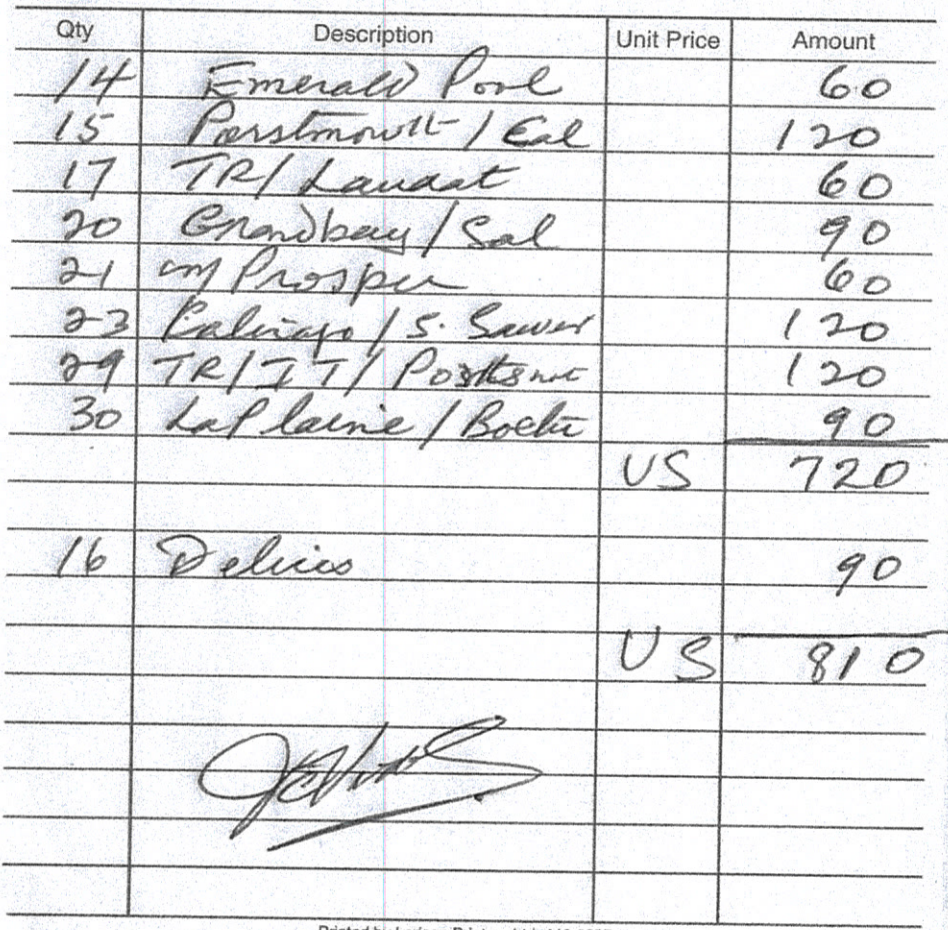 Qty Description Unit Price Amount
14 Emerald Pool 60
15 Porstmouth / Cal 120
17 TR / Laudat 60
20 Grandbay / Sal 90
21 m/ Prosper 60
23 Kalinago / S. Sawer 120
29 TR / IT / Portsm 120
30 LaPlaine / Boetic 90
US 720
16 Delices 90
US 810